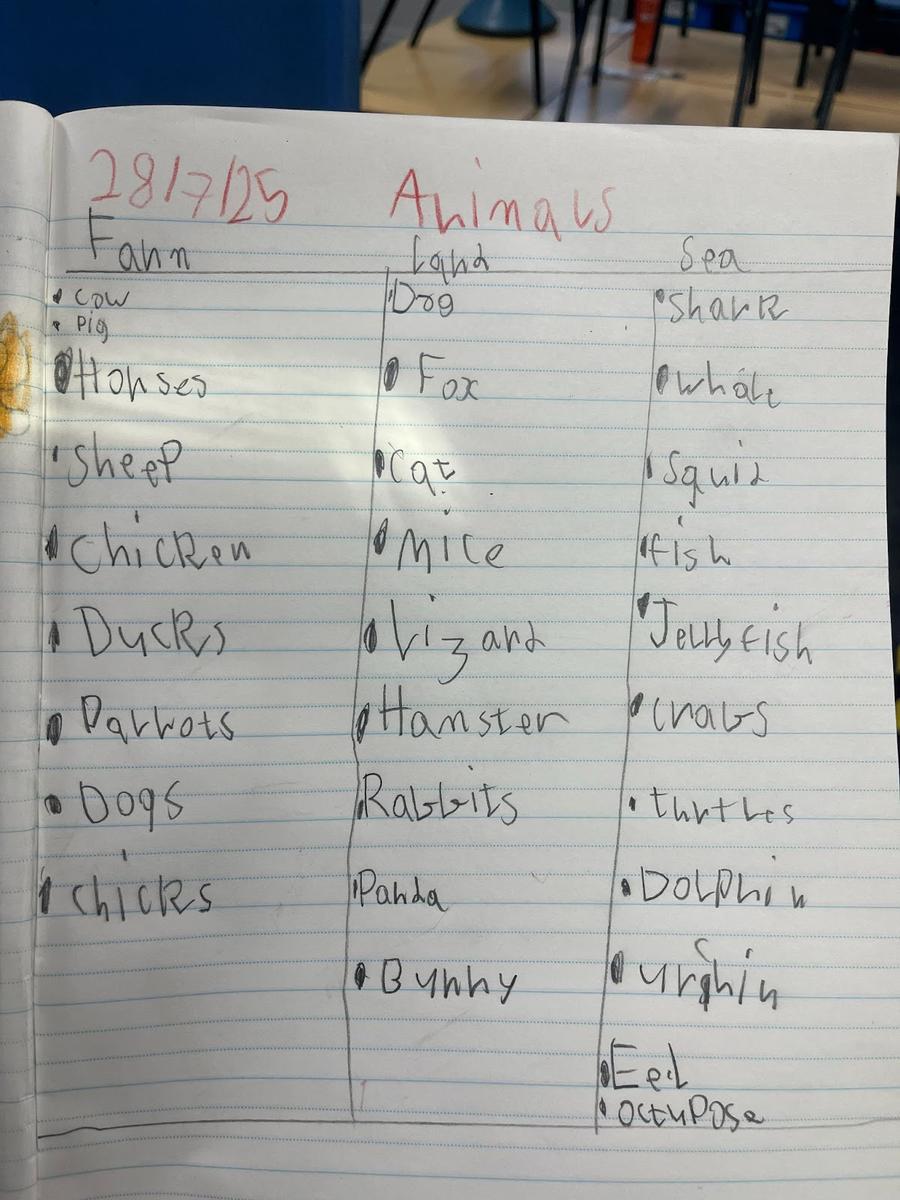 28/7/25 Animals
Farm Land Sea
• cow • Dog • Shark
• Pig
• Horses • Fox • whale
• Sheep • Cat • Squid
• Chicken • Mice • fish
• Ducks • Lizard • Jellyfish
• Parrots • Hamster • Crabs
• Dogs • Rabbits • turtles
• Chicks • Panda • Dolphin
• Bunny • urchin
• Eel
• octupose